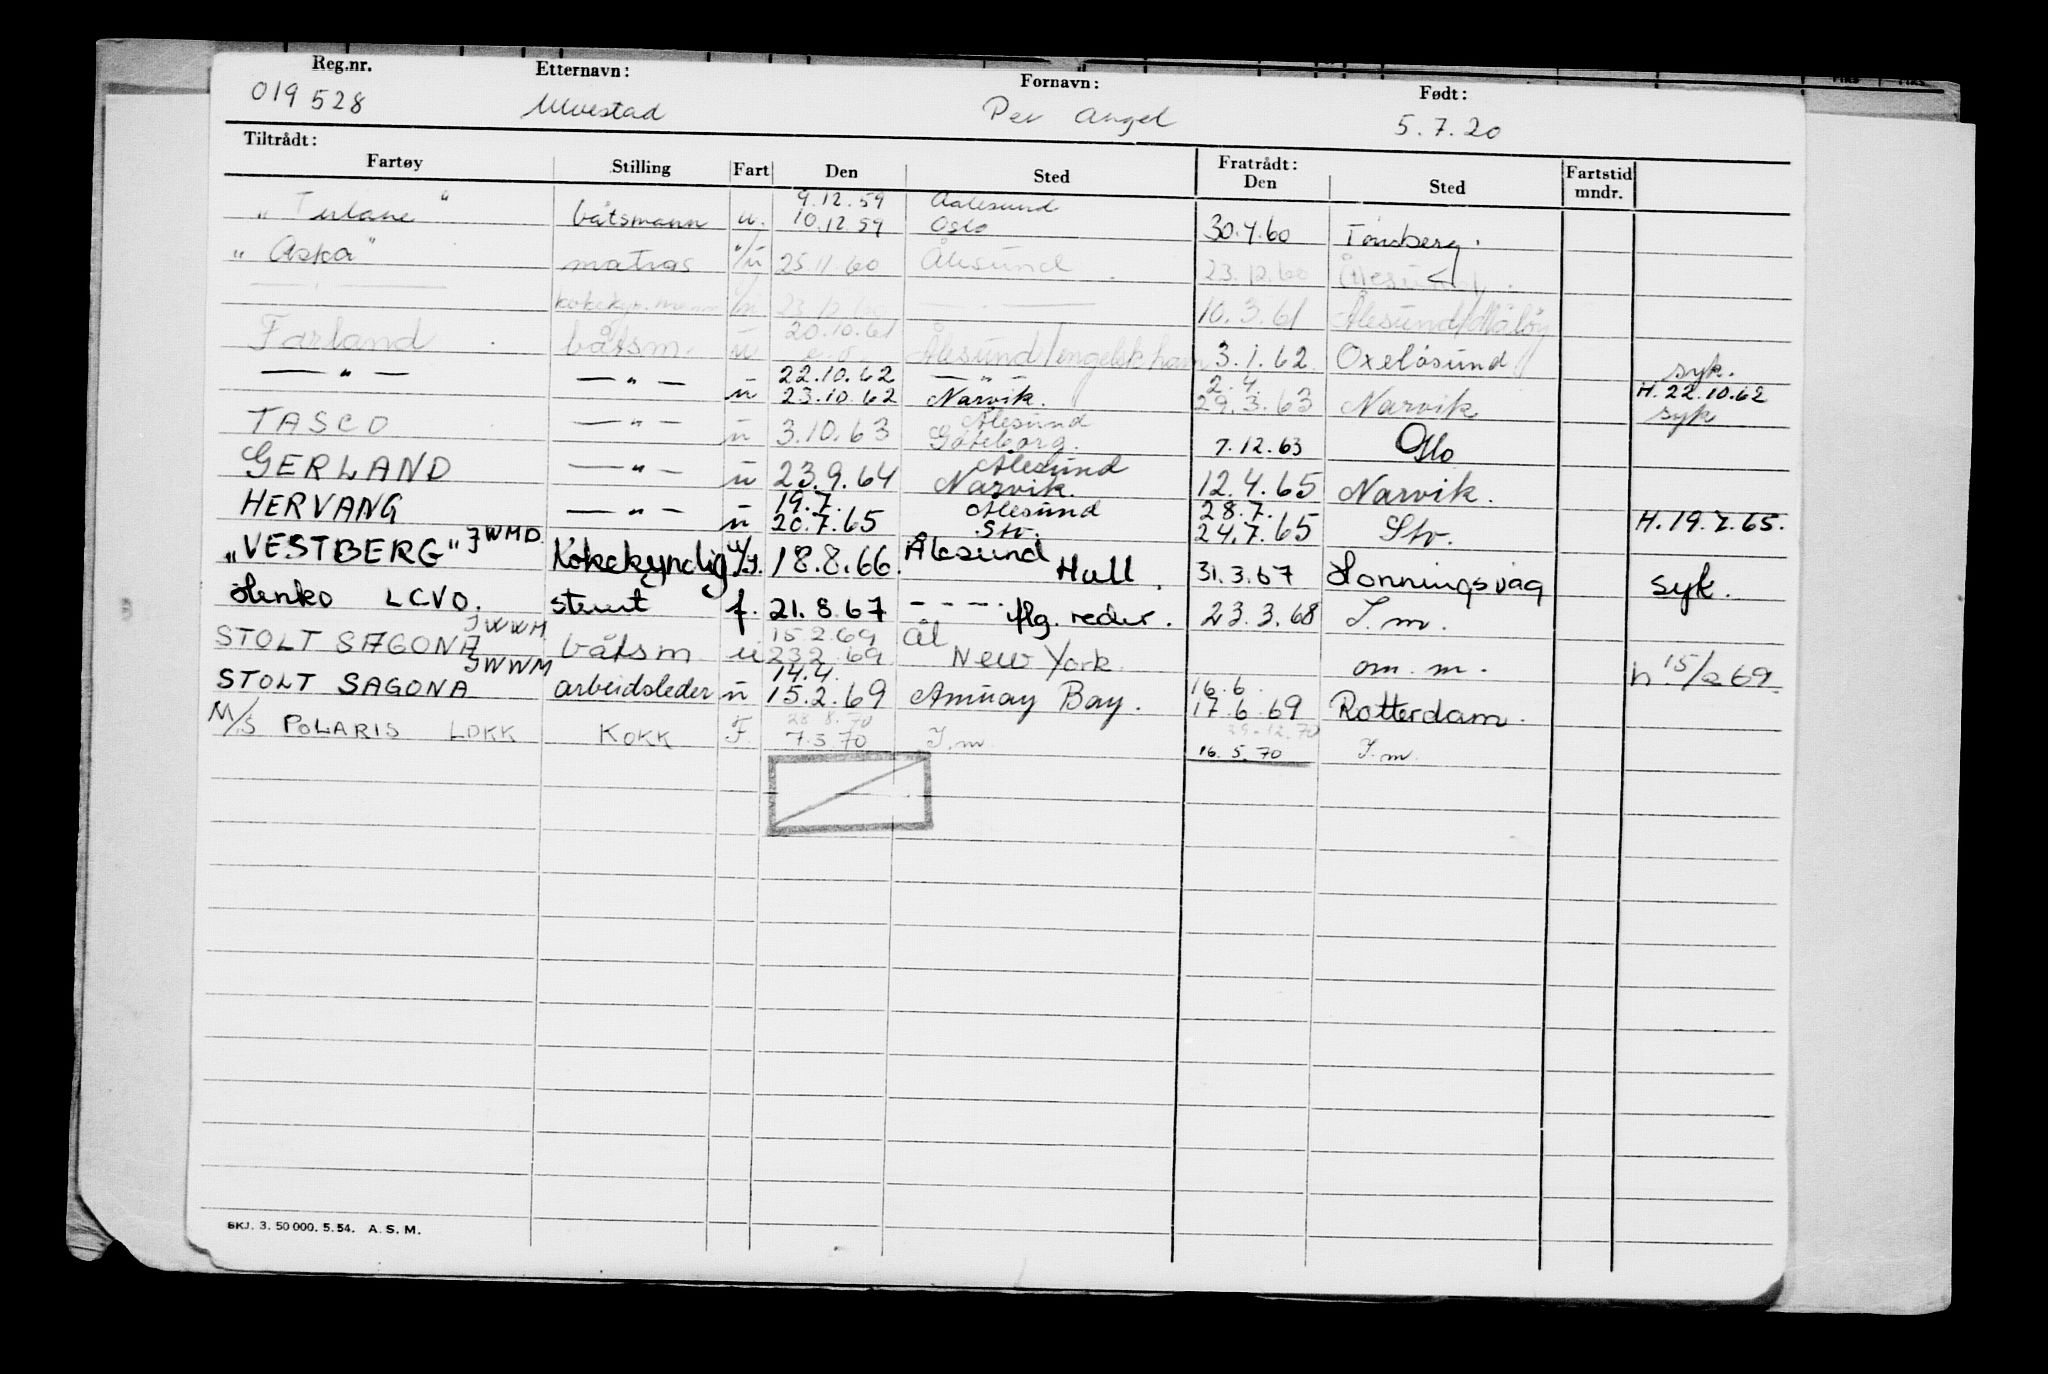 Reg.nr. Etternavn: Fornavn: Født:
019528 Ulvestad Per Angel 5.7.20
Tiltrådt: Fratrådt:
Fartøy Stilling Fart Den Sted Den Sted Fartstid mndr.
9.12.59 Aalesund
" " båtsmann u. 10.12.59 Oslo 30.4.60 Tønsberg.
"Aska" matros 25.11.60 Ålesund 23.12.60 Ålesund.
10.3.61 Ålesund/Måløy
20.10.61
Farland båtsm. u Ålesund/engelsk havn 3.1.62 Oxelösund syk.
— " — — " — 22.10.62 — " — 2.4. H. 22.10.62
u 23.10.62 Narvik. 29.3.63 Narvik syk
Ålesund
TASCO — " — u 3.10.63 Göteborg. 7.12.63 Oslo
Ålesund
GERLAND — " — u 23.9.64 Narvik. 12.4.65 Narvik.
19.7. Ålesund 28.7.
HERVANG — " — u 20.7.65 Stv. 24.7.65 Stv. H. 19.7.65.
"VESTBERG" JWMD Kokekyndig 18.8.66. Ålesund Hull. 31.3.67 Honningsvåg syk.
Henko LCVO. stuert f. 21.8.67 - - - - flg. reder. 23.3.68 I.m.
JWWM 15.2.69 Ål
STOLT SAGONA båtsm u 23.2.69 New York. om. m. h 15/2 69.
JWWM 14.4. 16.6.
STOLT SAGONA arbeidsleder u 15.2.69 Amuay Bay. 17.6.69 Rotterdam.
28.8.70 29.12.70
M/S POLARIS LDKK KOKK F. 7.3.70 I.m 16.5.70 I.m.
SKJ. 3. 50 000. 5.54. A. S. M.